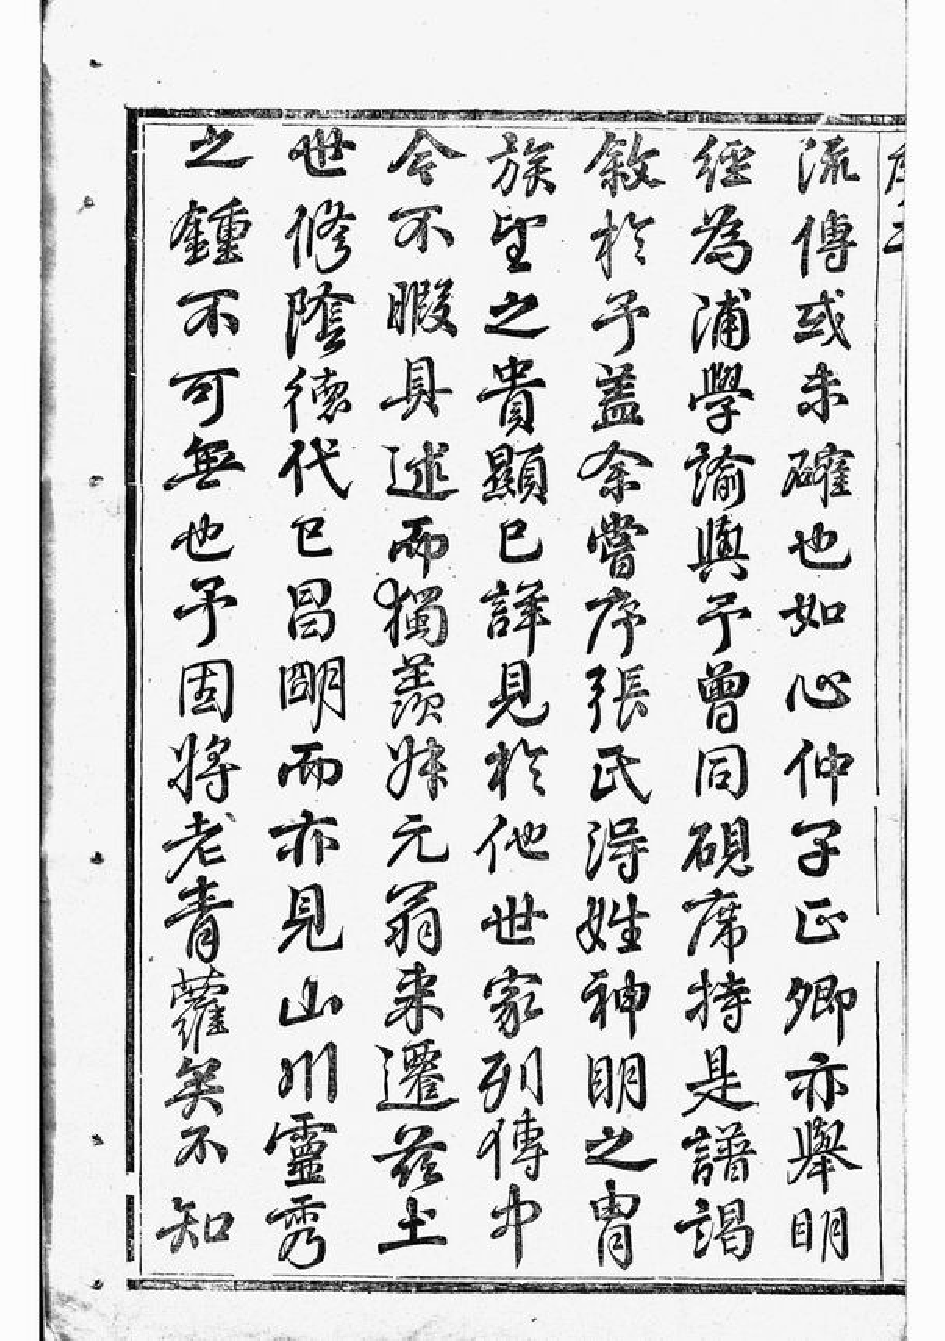 流傳或未確也如心仲子正卿亦舉明
經為浦學諭與予曾同硯席持是譜謁
敘於予蓋余嘗序張氏得姓神明之胄
族望之貴顯已詳見於他世家列傳中
今不暇具述而獨羨妹元翁來遷茲土
世修陰德代已昌明而亦見山川靈秀
之鍾不可無也予固將老青蘿矣不知